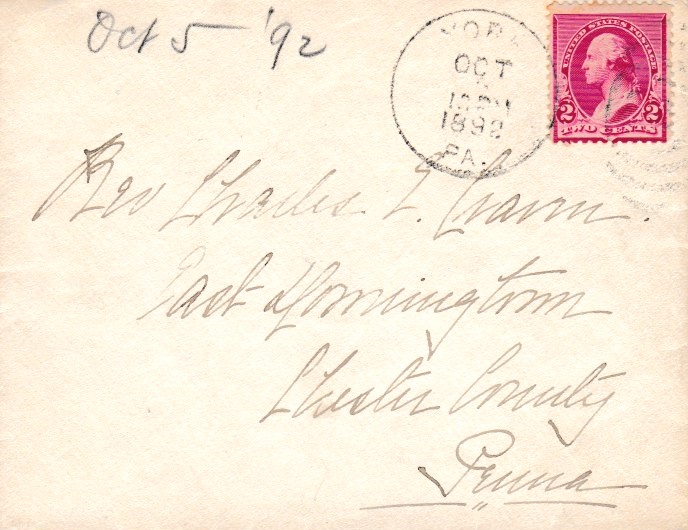 Oct 5 - '92
YORK
OCT
1892
PA.
UNITED STATES POSTAGE
2 2
TWO CENTS
Rev Charles E. Craven.
East Downingtown
Chester County
Penna